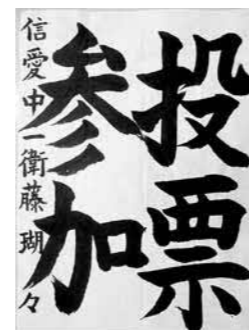 投票
参加
信愛中一衛藤瑚々